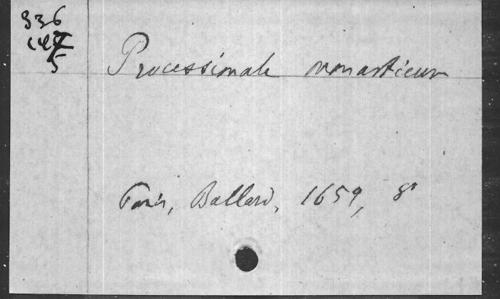 336
5
Processionale monasticum
Paris, Ballard, 1659, 8°